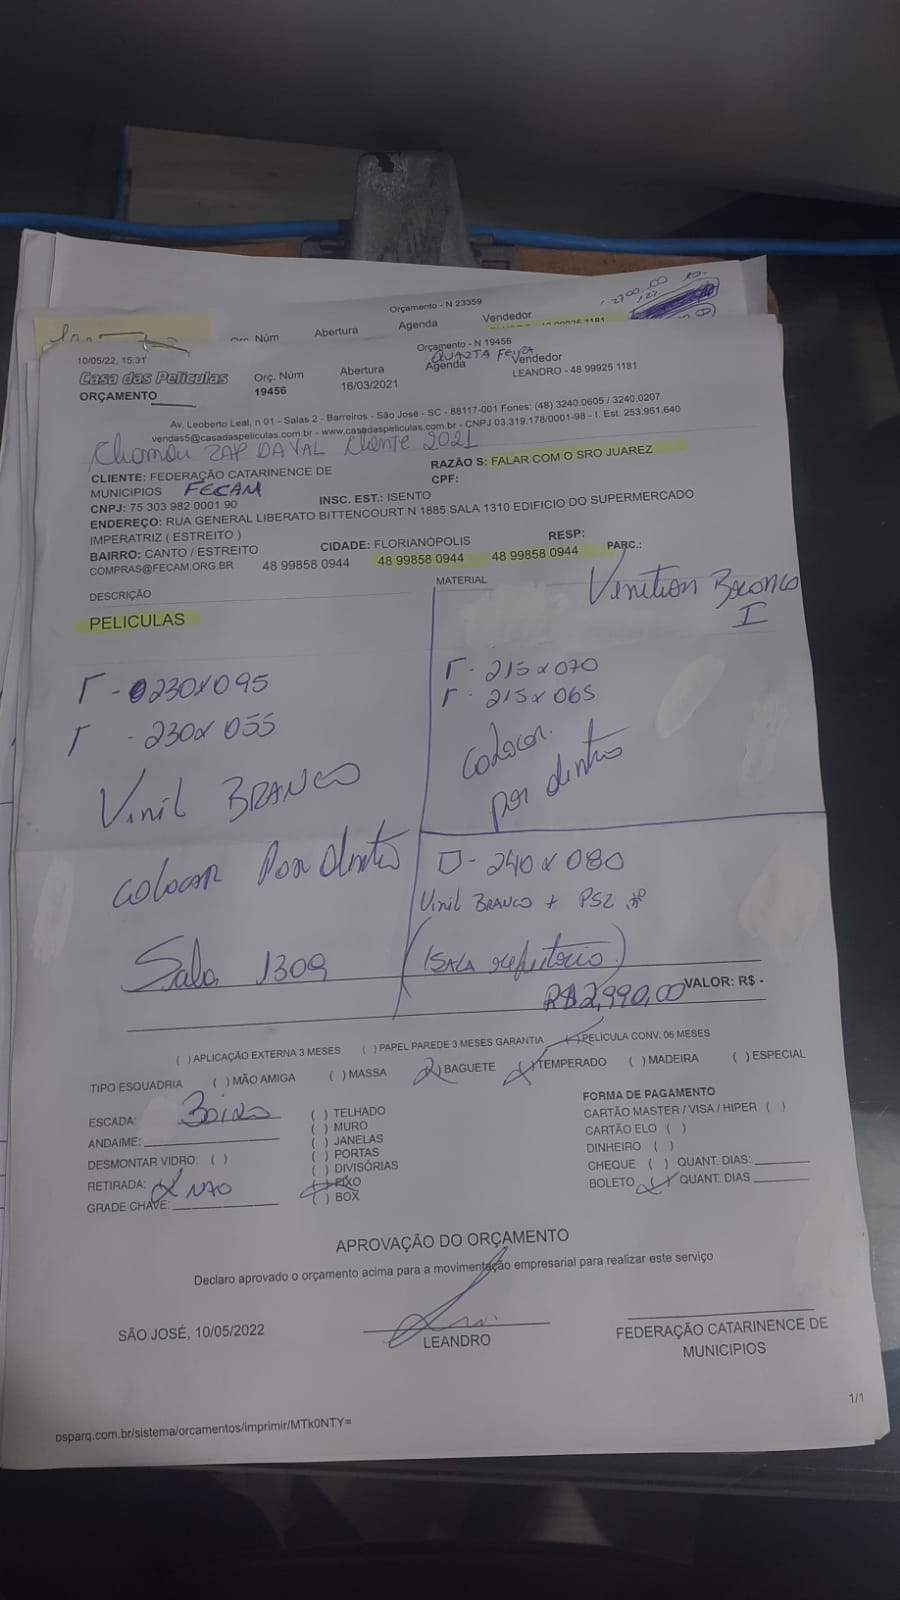 Orçamento - N 23359
Núm Abertura Agenda Vendedor
2700,00
12x
10/05/22, 15:31
Orçamento - N 19456
QUARTA FEIRA
Casa das Películas Orç. Núm Abertura Agenda Vendedor
ORÇAMENTO 19456 16/03/2021 LEANDRO - 48 99925 1181
Av. Leoberto Leal, n 01 - Salas 2 - Barreiros - São José - SC - 88117-001 Fones: (48) 3240.0605 / 3240.0207
vendas5@casadaspeliculas.com.br - www.casadaspeliculas.com.br - CNPJ 03.319.178/0001-98 - I. Est. 253.951.640
Chamou ZAP DAVAL Cliente 2021
CLIENTE: FEDERAÇÃO CATARINENCE DE RAZÃO S: FALAR COM O SRO JUAREZ
MUNICIPIOS FECAM CPF:
CNPJ: 75 303 982 0001 90 INSC. EST.: ISENTO
ENDEREÇO: RUA GENERAL LIBERATO BITTENCOURT N 1885 SALA 1310 EDIFICIO DO SUPERMERCADO
IMPERATRIZ ( ESTREITO )
BAIRRO: CANTO / ESTREITO CIDADE: FLORIANÓPOLIS RESP:
COMPRAS@FECAM.ORG.BR 48 99858 0944 48 99858 0944 48 99858 0944 PARC.:
DESCRIÇÃO MATERIAL
Branco
I
PELICULAS
Γ - 230x095
Γ - 230x055
Vinil BRANCO
Colocar Por dentro
Sala 1309
Γ - 215x070
Γ - 215x065
Colocar
por dentro
□ - 240x080
Vinil BRANCO + PS2
(SALA refeitorio)
R$2,990,00 VALOR: R$ -
( ) APLICAÇÃO EXTERNA 3 MESES ( ) PAPEL PAREDE 3 MESES GARANTIA ( ) PELÍCULA CONV. 06 MESES
TIPO ESQUADRIA ( ) MÃO AMIGA ( ) MASSA (X) BAGUETE (X) TEMPERADO ( ) MADEIRA ( ) ESPECIAL
ESCADA:
ANDAIME:
DESMONTAR VIDRO: ( )
RETIRADA: (X) NAO
GRADE CHAVE:
( ) TELHADO
( ) MURO
( ) JANELAS
( ) PORTAS
( ) DIVISÓRIAS
(X) FIXO
( ) BOX
FORMA DE PAGAMENTO
CARTÃO MASTER / VISA / HIPER ( )
CARTÃO ELO ( )
DINHEIRO ( )
CHEQUE ( ) QUANT. DIAS:
BOLETO (X) QUANT. DIAS
APROVAÇÃO DO ORÇAMENTO
Declaro aprovado o orçamento acima para a movimentação empresarial para realizar este serviço
SÃO JOSÉ, 10/05/2022
LEANDRO
FEDERAÇÃO CATARINENCE DE
MUNICIPIOS
1/1
osparq.com.br/sistema/orcamentos/imprimir/MTk0NTY=